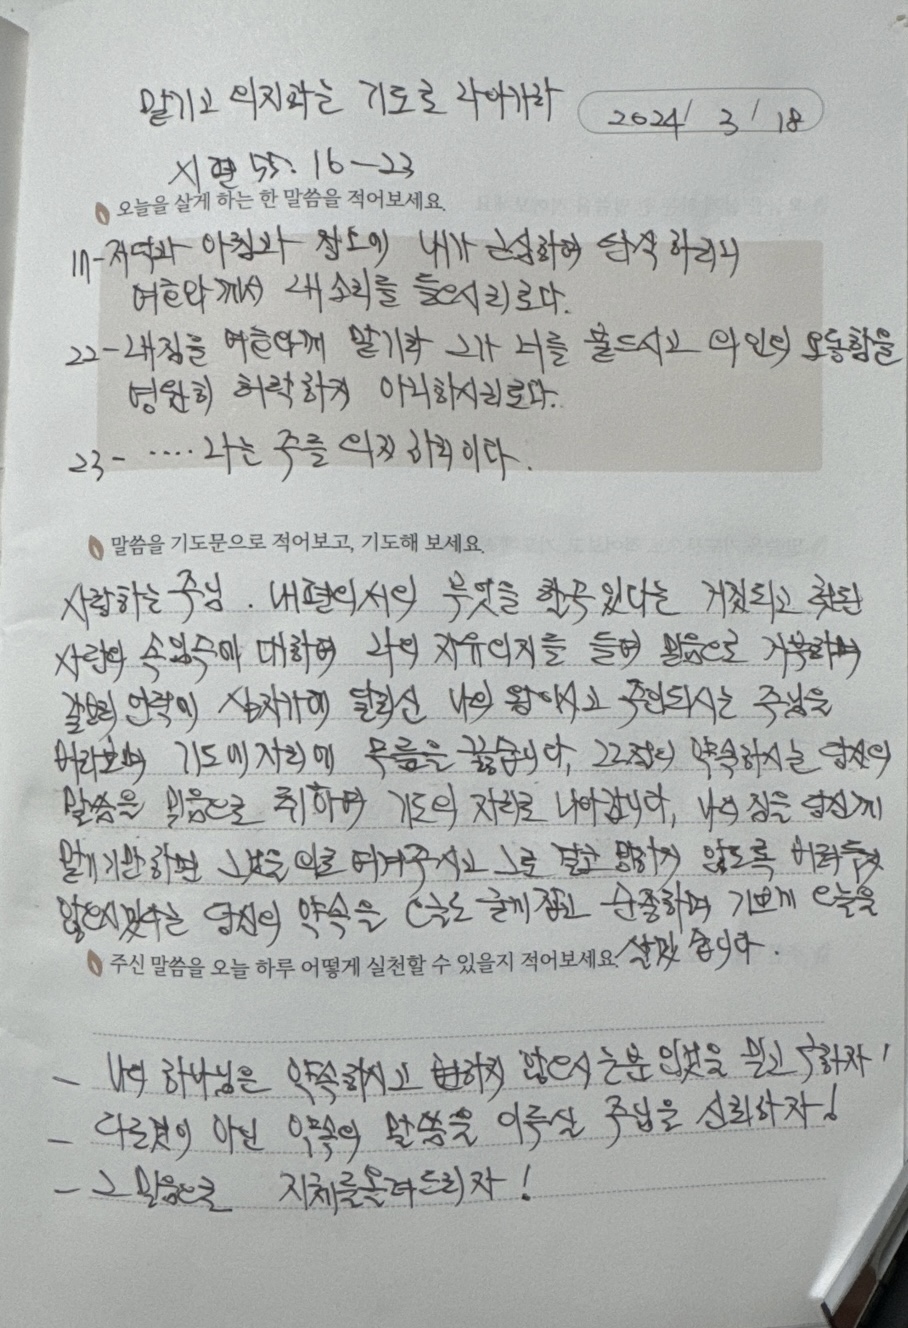 맡기고 의지하는 기도로 나아가라
2024/ 3/ 18
시편 55: 16-23
오늘을 살게 하는 한 말씀을 적어보세요.
17-저녁과 아침과 정오에 내가 근심하며 탄식하리니
여호와께서 내 소리를 들으시리로다.
22- 네 짐을 여호와께 맡기라 그가 너를 붙드시고 의인의 요동함을
영원히 허락하지 아니하시리로다.
23- .... 나는 주를 의지하리이다.
말씀을 기도문으로 적어보고, 기도해 보세요.
사랑하는 주님. 내편에서의 무엇을 할 수 있다는 거짓되고
사단의 속임수에 대하여 나의 자유의지를 들여 믿음으로 거부하며
갈보리 언덕에 십자가에 달리신 나의 왕이시고 주인되시는 주님을
바라보며 기도에 자리에 무릎을 꿇습니다. 약속하시는 당신의
말씀을 믿음으로 취하며 기도의 자리로 나아갑니다. 나의 짐을 당신께
맡기기만 하면 그것을 의로 여겨주시고 망하지 않도록 버려두지
않으시겠다는 당신의 약속을 오늘도 굳게 잡고 순종하며 기쁘게 오늘을
살겠습니다.
주신 말씀을 오늘 하루 어떻게 실천할 수 있을지 적어보세요.
- 나의 하나님은 약속하시고 변하지 않으시는분 인것을 믿고 구하자!
- 다른것이 아닌 약속의 말씀을 이루실 주님을 신뢰하자!
- 그 믿음으로 지체를올려드리자!